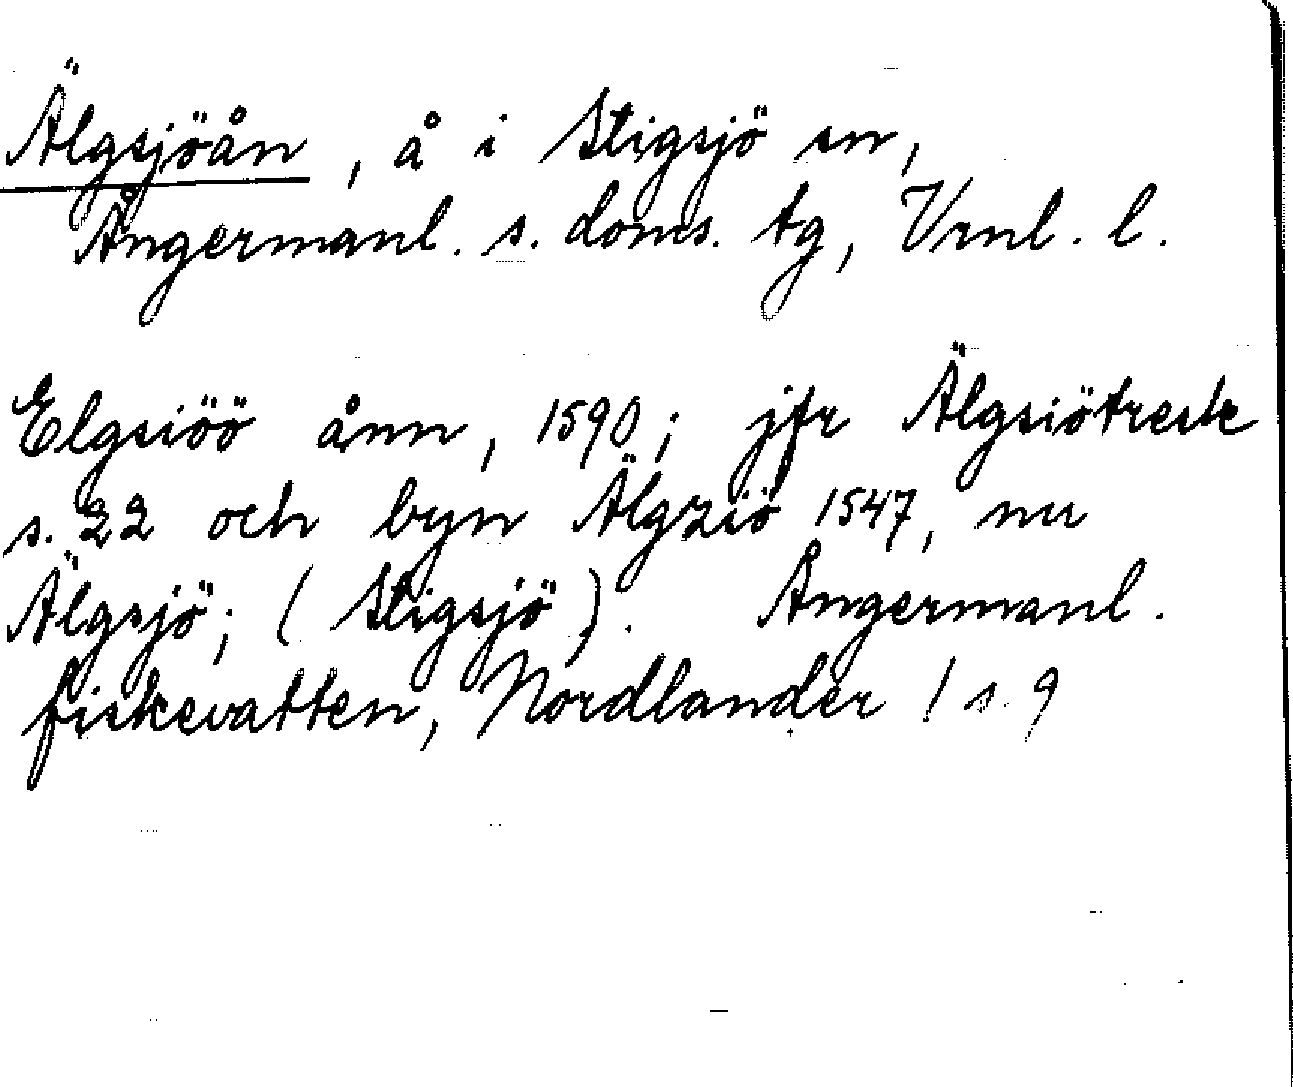 Älgsjöån, å i Stigsjö sn,
Ångermanl. s. doms. tg, Vrnl. l.
Elgsiöö ånn, 1590; jfr Älgsiötresk
s. 22 och byn Älgziö 1547, nu
Älgsjö; (Stigsjö). Ångermanl.
fiskevatten, Nordlander 1 s. 9